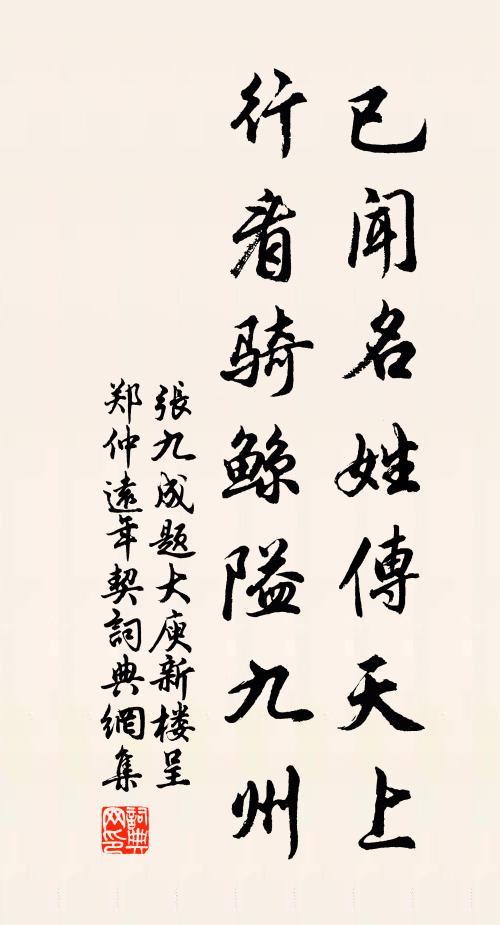 已闻名姓傳天上
行看骑鲸隘九州
張九成题大庾新楼呈
郑仲遠年契詞典網集
詞典網印